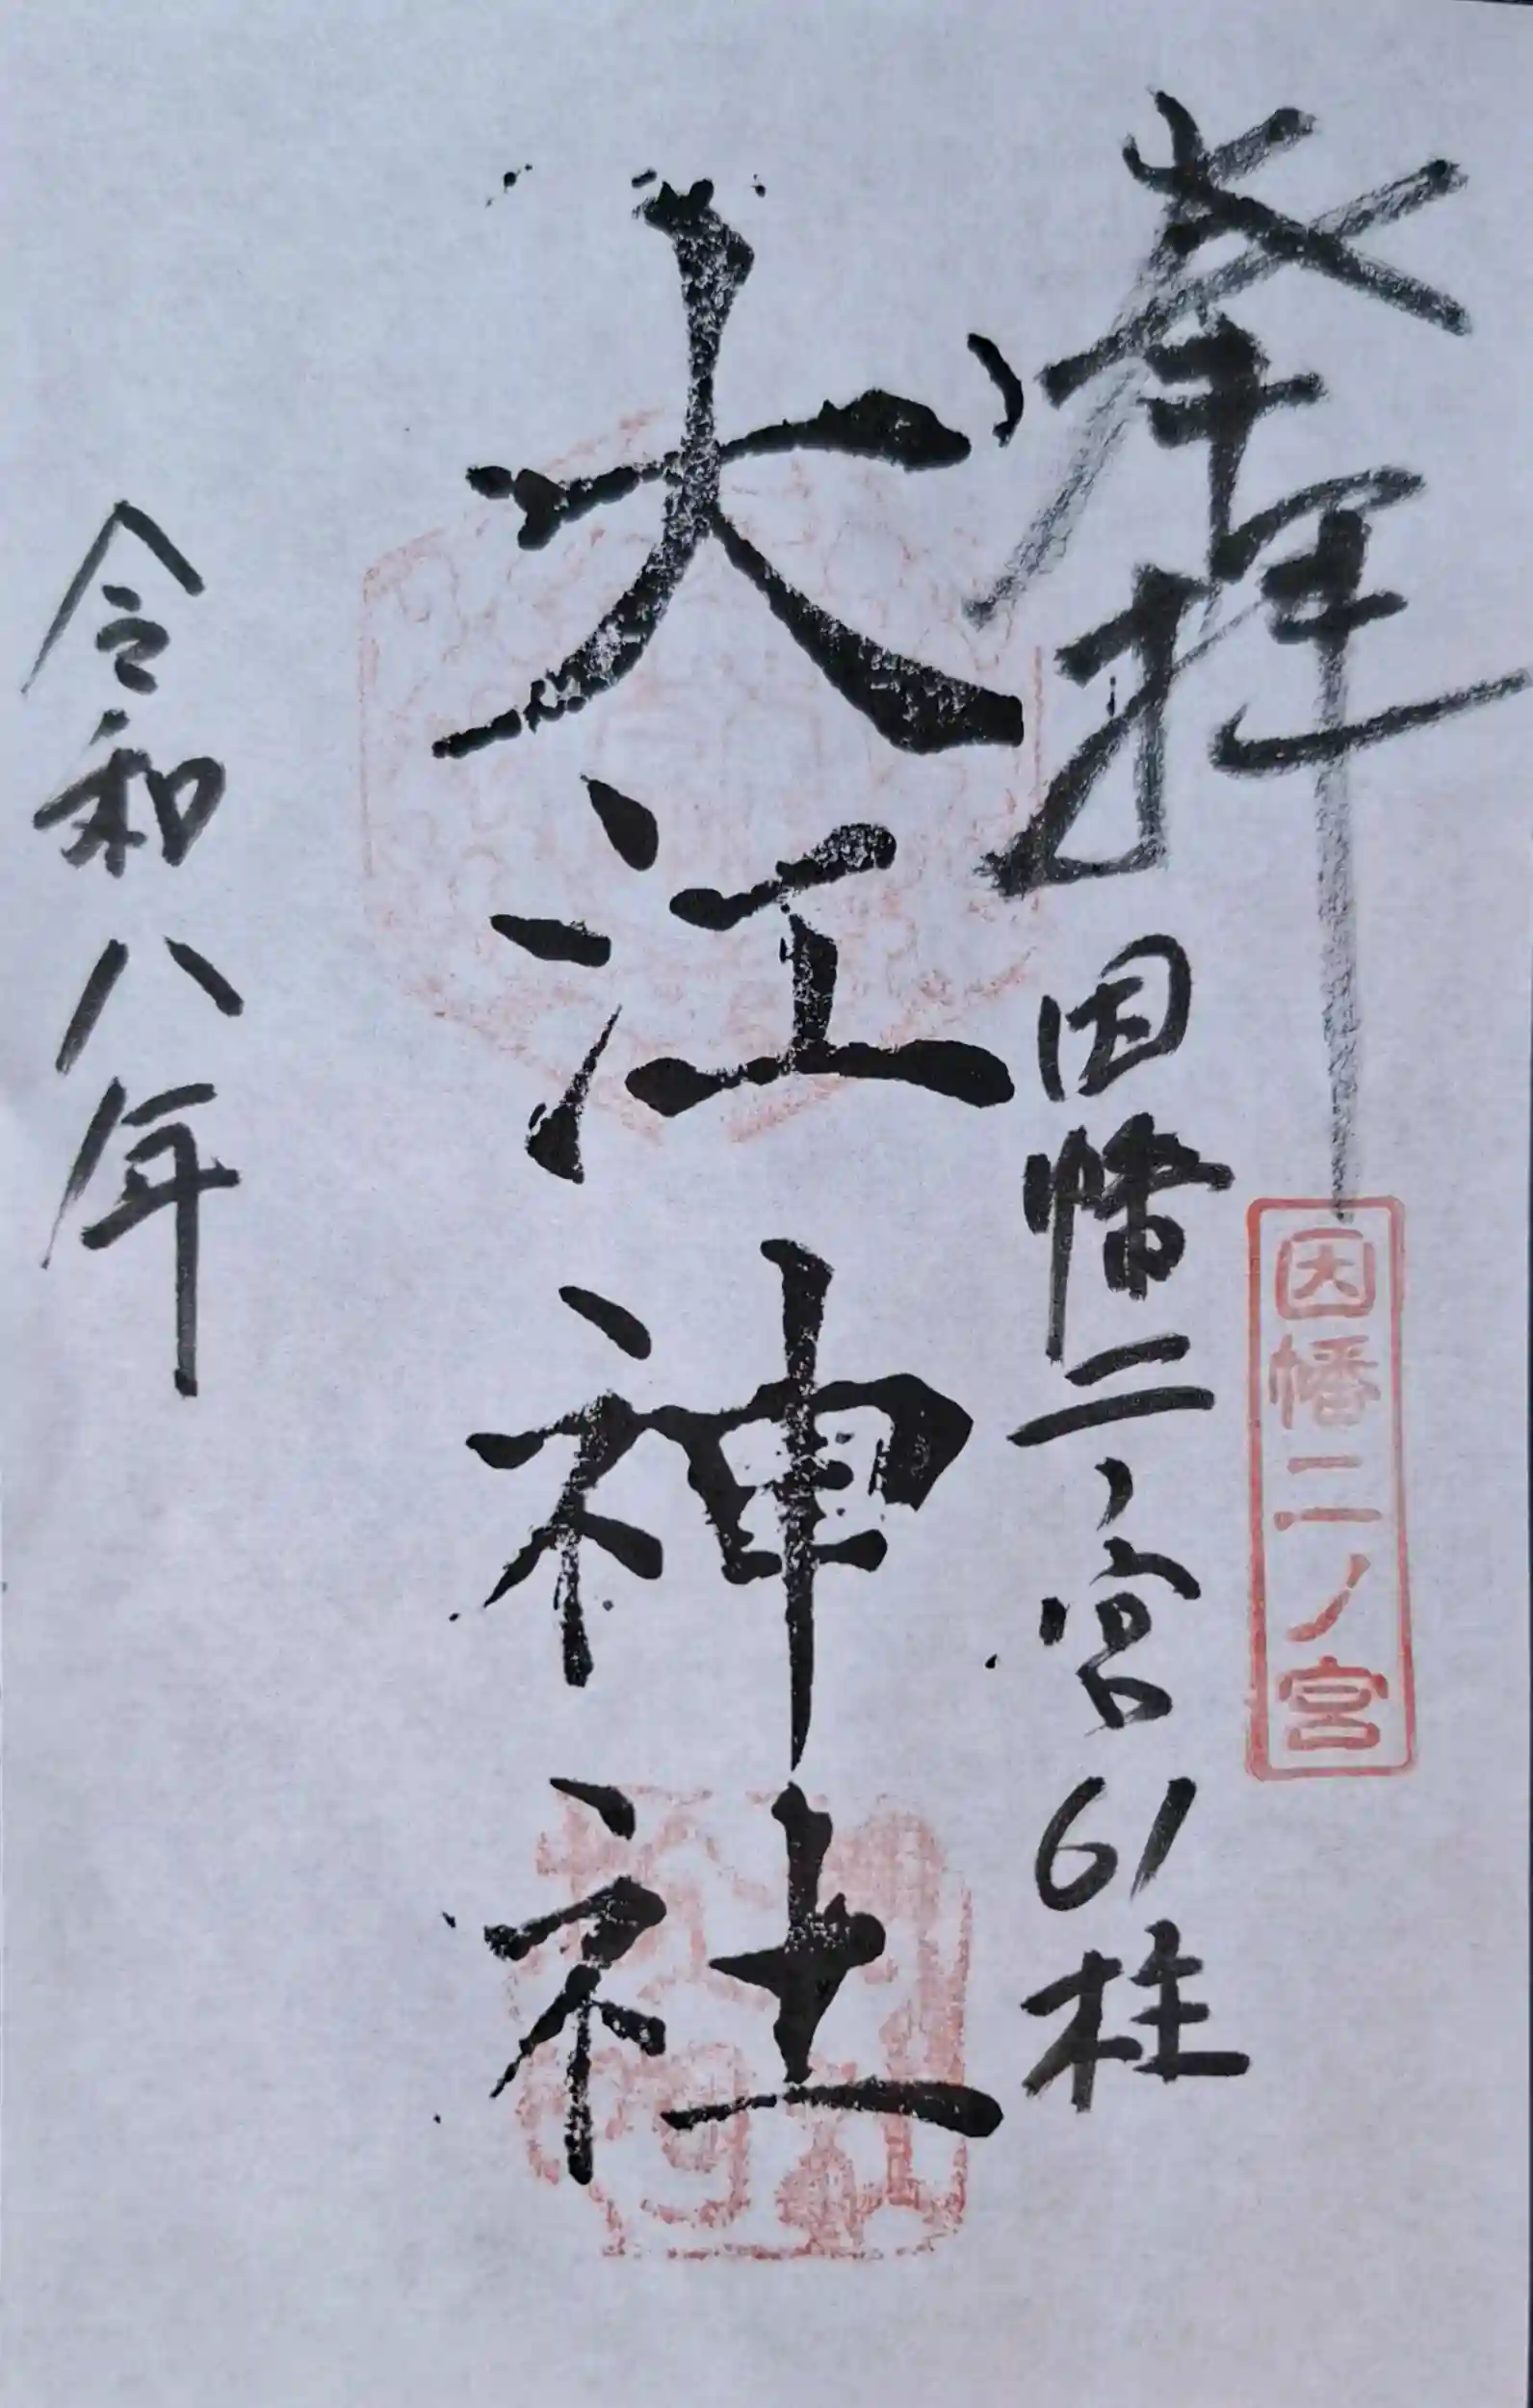 奉拝
因幡二ノ宮
因幡二ノ宮61柱
大江神社
令和八年